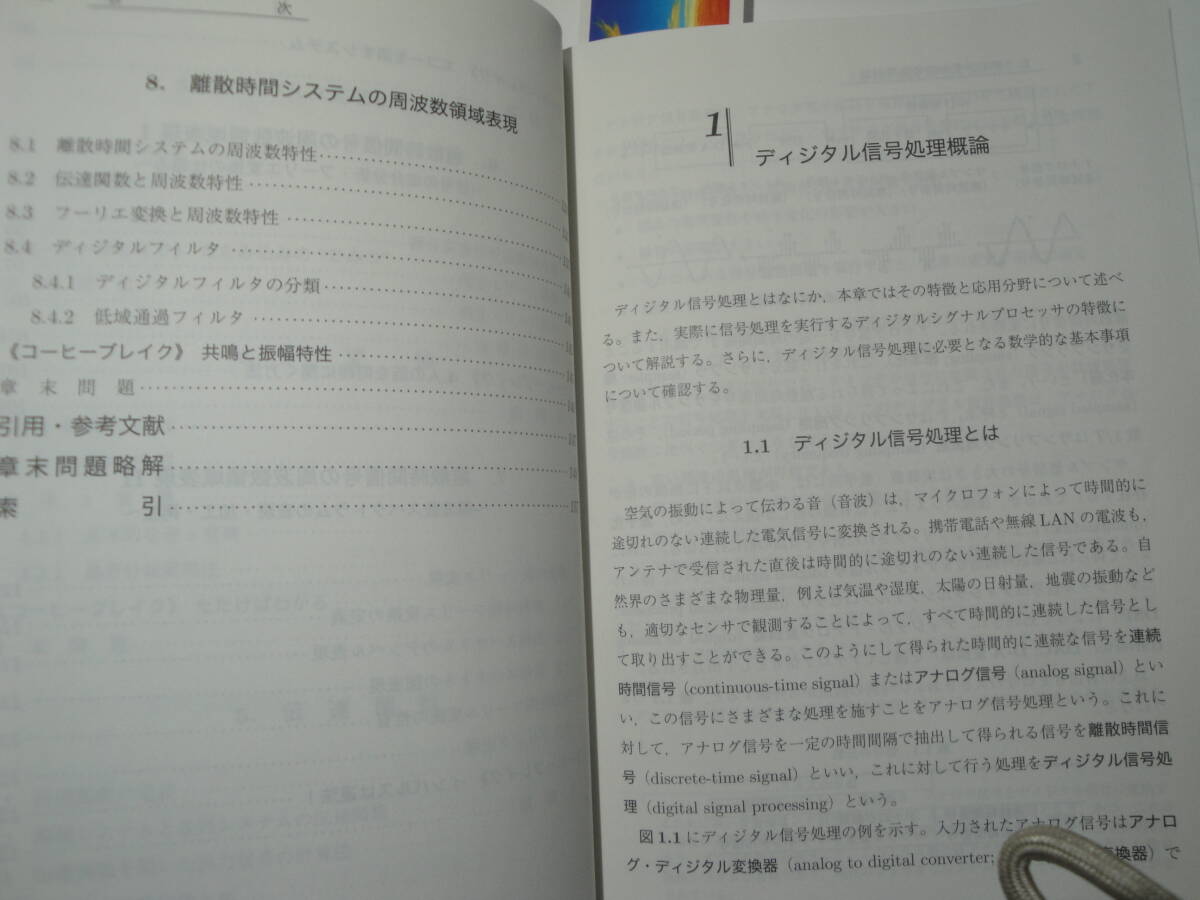 次
8. 離散時間システムの周波数領域表現
8.1 離散時間システムの周波数特性
8.2 伝達関数と周波数特性
8.3 フーリエ変換と周波数特性
8.4 ディジタルフィルタ
8.4.1 ディジタルフィルタの分類
8.4.2 低域通過フィルタ
《コーヒーブレイク》 共鳴と振幅特性
章末問題
引用・参考文献
章末問題略解
索引
1
ディジタル信号処理概論
ディジタル信号処理とはなにか，本章ではその特徴と応用分野について述べ
る。また，実際に信号処理を実行するディジタルシグナルプロセッサの特徴に
ついて解説する。さらに，ディジタル信号処理に必要となる数学的な基本事項
について確認する。
1.1 ディジタル信号処理とは
空気の振動によって伝わる音（音波）は，マイクロフォンによって時間的に
途切れのない連続した電気信号に変換される。携帯電話や無線LANの電波も，
アンテナで受信された直後は時間的に途切れのない連続した信号である。自
然界のさまざまな物理量，例えば気温や湿度，太陽の日射量，地震の振動など
も，適切なセンサで観測することによって，すべて時間的に連続した信号とし
て取り出すことができる。このようにして得られた時間的に連続な信号を連続
時間信号（continuous-time signal）またはアナログ信号（analog signal）とい
い，この信号にさまざまな処理を施すことをアナログ信号処理という。これに
対して，アナログ信号を一定の時間間隔で抽出して得られる信号を離散時間信
号（discrete-time signal）といい，これに対して行う処理をディジタル信号処
理（digital signal processing）という。
図1.1にディジタル信号処理の例を示す。入力されたアナログ信号はアナロ
グ・ディジタル変換器（analog to digital converter; 変換器）で